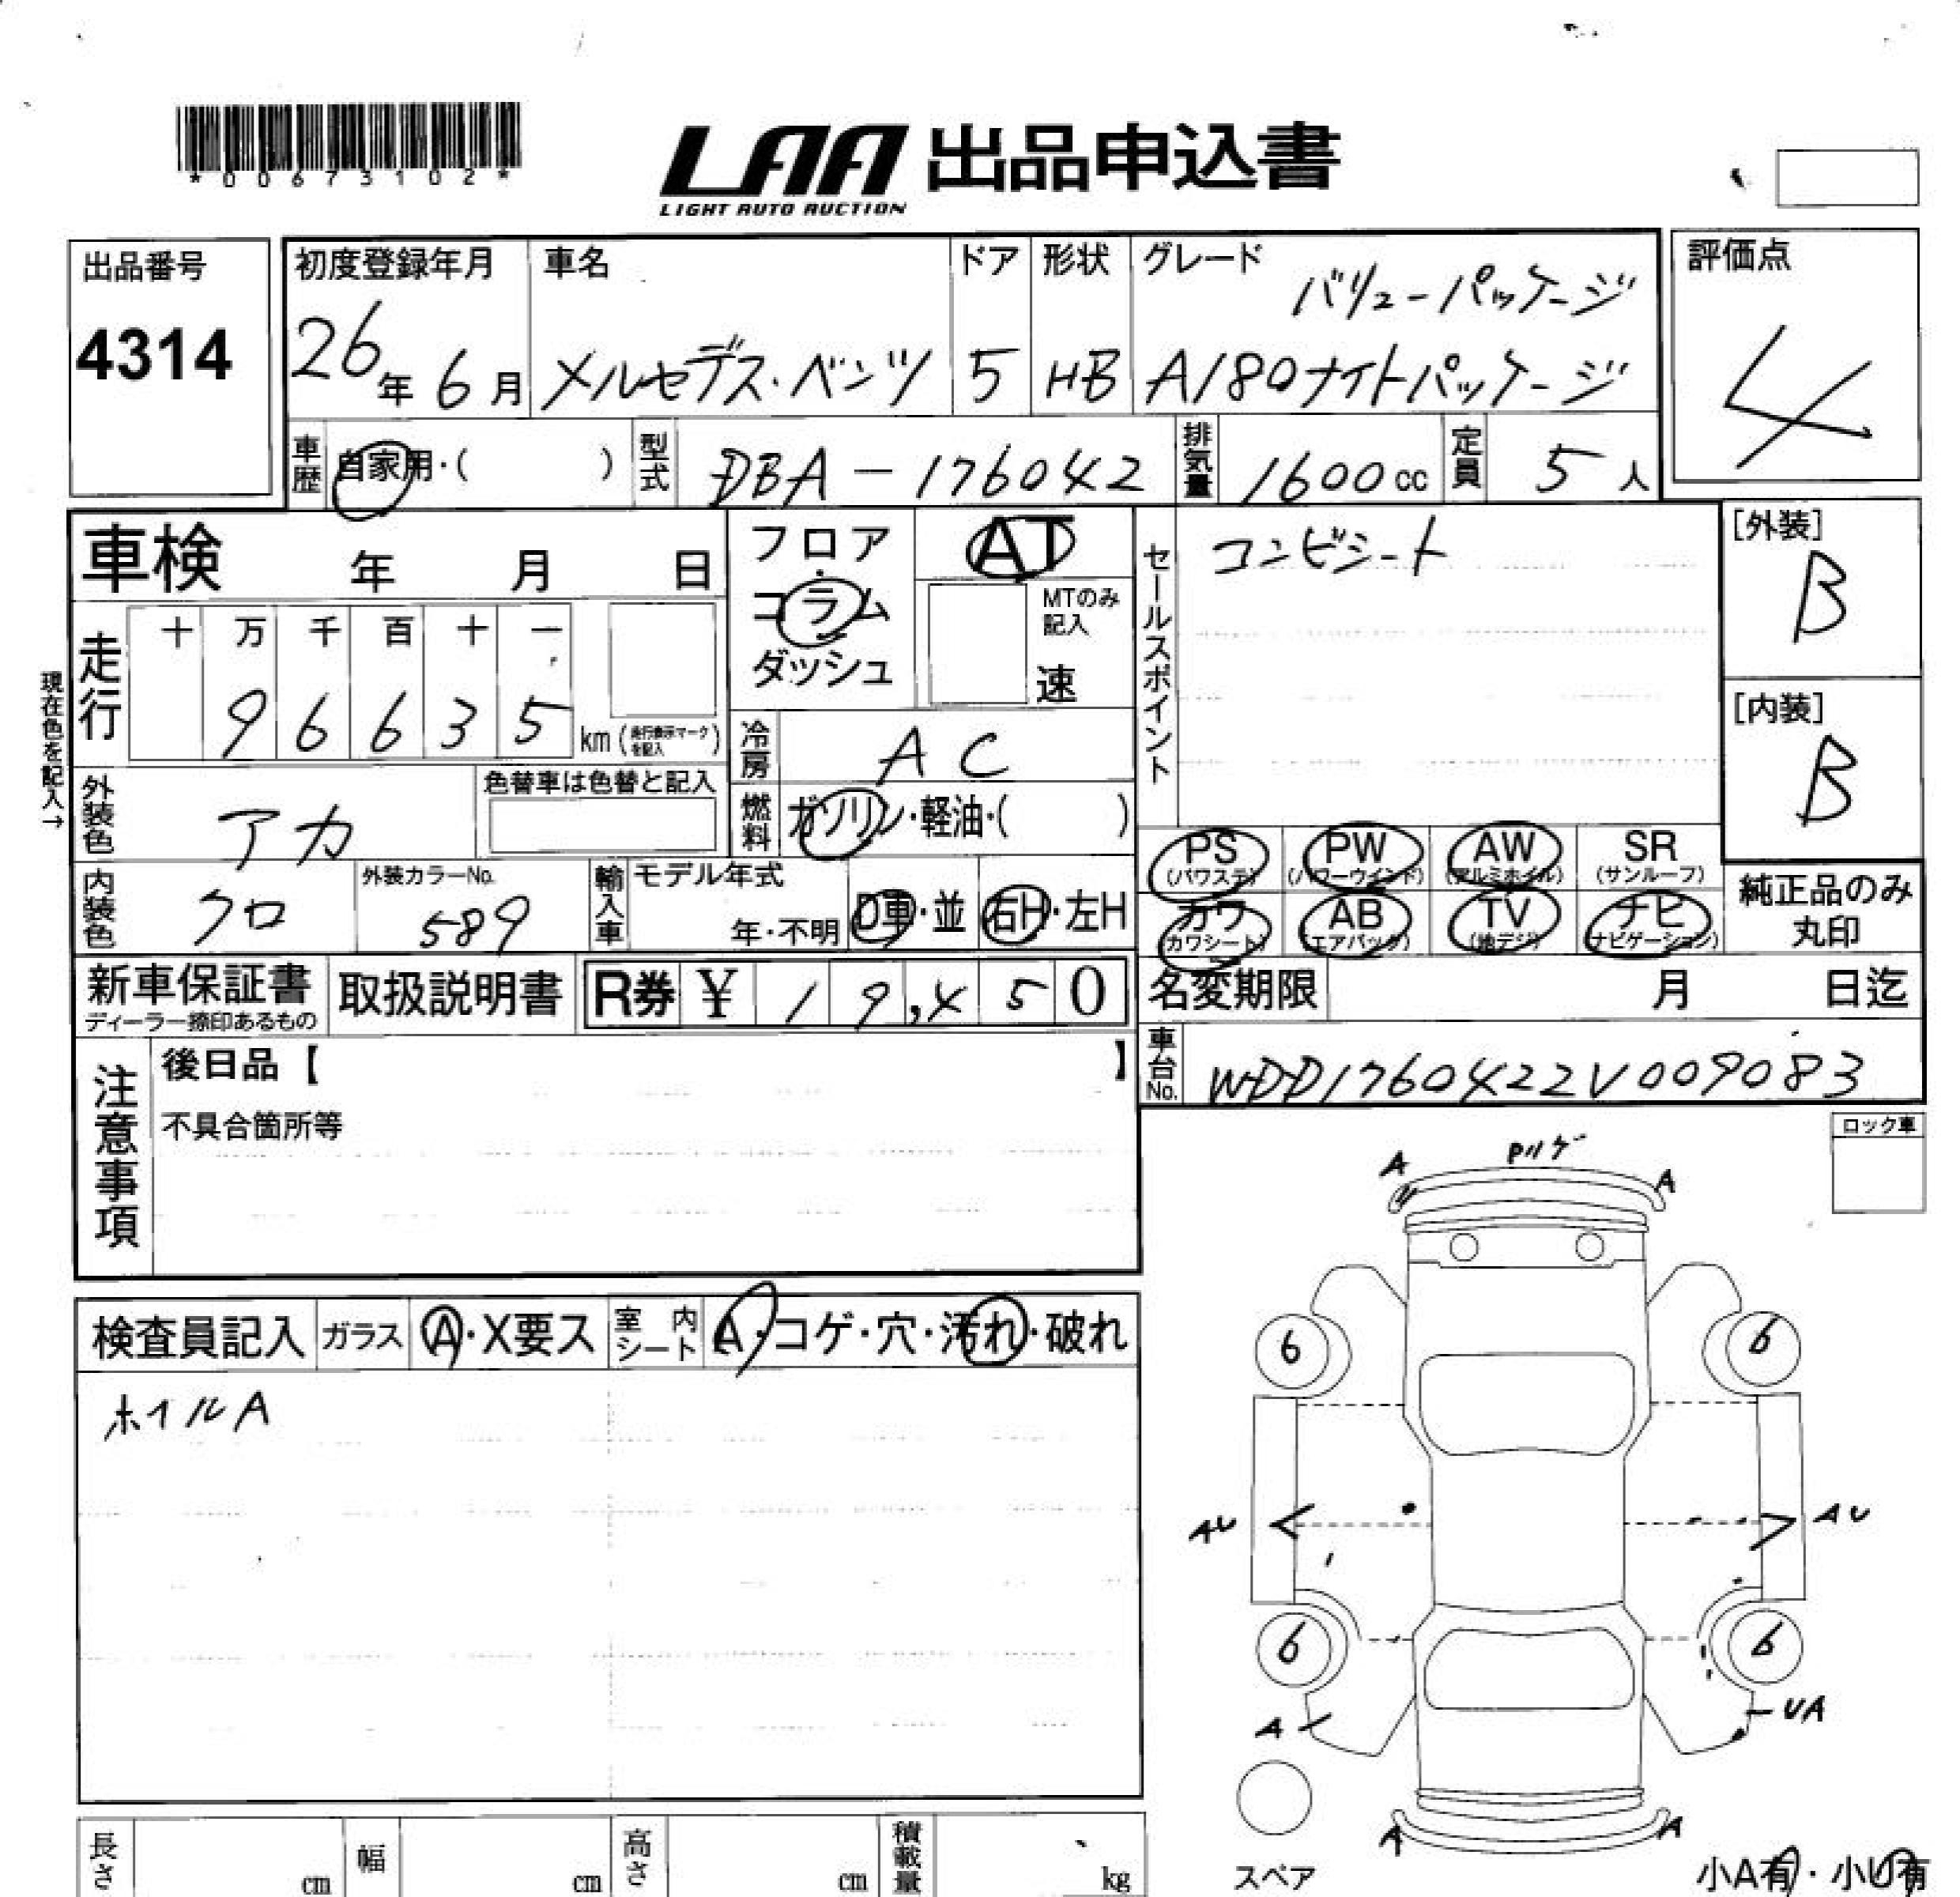 *00673102*
LAA 出品申込書
LIGHT AUTO AUCTION
出品番号
4314
初度登録年月
26年6月
車名
メルセデス・ベンツ
ドア
5
形状
HB
グレード
バリューパッケージ
A180ナイトパッケージ
評価点
4
車歴 自家用・( )
型式 DBA-176042
排気量 1600cc
定員 5人
車検 年 月 日
フロア・コラム ダッシュ
AT
MTのみ記入
速
セールスポイント
コンビシート
[外装]
B
[内装]
B
現在色を記入→
走行
十 万 千 百 十 一
9 6 6 3 5 km (走行表示マークを記入)
冷房 AC
外装色 アカ
色替車は色替と記入
燃料 ガソリン・軽油・( )
内装色 クロ
外装カラーNo. 589
輸入車 モデル年式
年・不明 D車・並 右H・左H
PS (パワステ) PW (パワーウインド) AW (アルミホイル) SR (サンルーフ)
カワ (カワシート) AB (エアバック) TV (地デジ) ナビ (ナビゲーション)
純正品のみ丸印
新車保証書
ディーラー捺印あるもの
取扱説明書
R券 ¥ 19,450
名変期限 月 日迄
車台No. WDD1760422V009083
注意事項
後日品【 】
不具合箇所等
ロック車
検査員記入 ガラス A・X要ス 室内シート A・コゲ・穴・汚れ・破れ
ホイルA
A A
6 6
AU AU
6 6
A UA
A A
スペア
小A有・小U有
長さ cm 幅 cm 高さ cm 積載量 kg